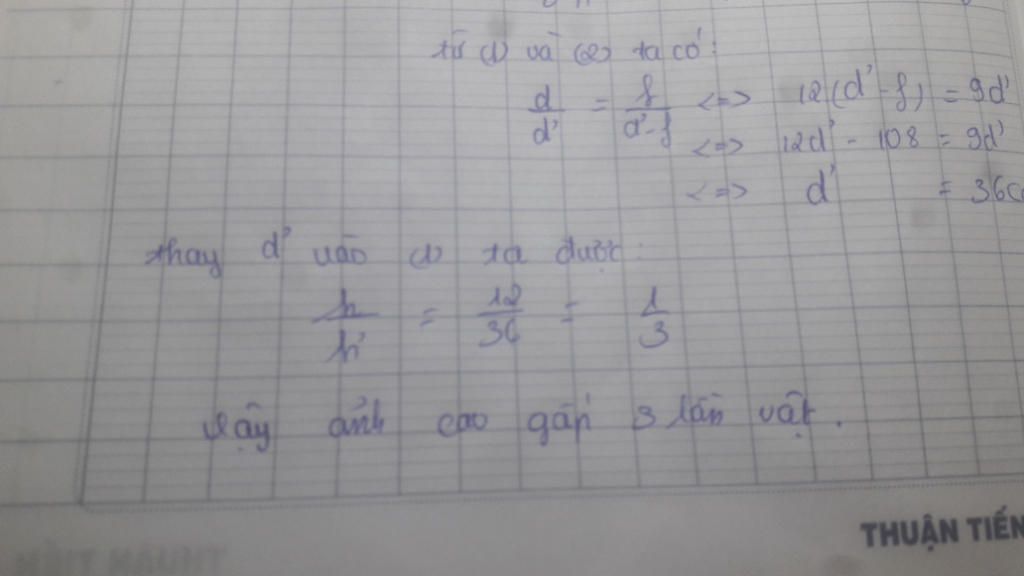 từ (1) và (2) ta có:
d/d' = f/d'-f <=> 12(d' - f) = 9d'
<=> 12d' - 108 = 9d'
<=> d' = 36c
thay d' vào (1) ta được:
h/h' = 12/36 = 1/3
Vậy ảnh cao gấp 3 lần vật.
THUẬN TIẾN